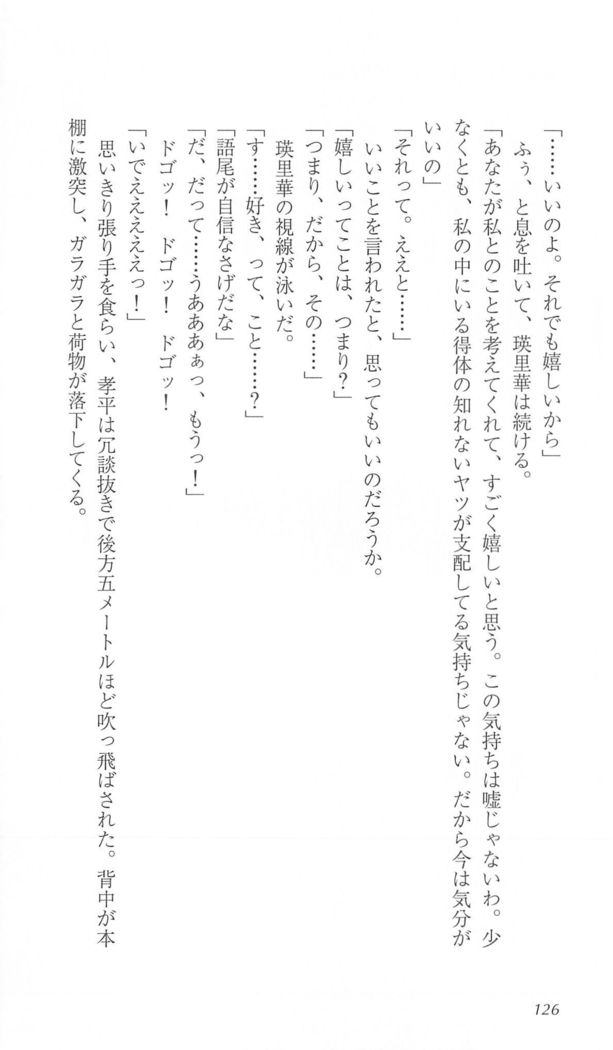 「……いいのよ。それでも嬉しいから」
ふぅ、と息を吐いて、瑛里華は続ける。
「あなたが私とのことを考えてくれて、すごく嬉しいと思う。この気持ちは嘘じゃないわ。少
なくとも、私の中にいる得体の知れないヤツが支配してる気持ちじゃない。だから今は気分が
いいの」
「それって。ええと……」
いいことを言われたと、思ってもいいのだろうか。
「嬉しいってことは、つまり？」
「つまり、だから、その……」
瑛里華の視線が泳いだ。
「す……好き、って、こと……？」
「語尾が自信なさげだな」
「だ、だって……うあああぁっ、もうっ！」
ドゴッ！　ドゴッ！　ドゴッ！
「いでえええええっ！」
思いきり張り手を食らい、孝平は冗談抜きで後方五メートルほど吹っ飛ばされた。背中が本
棚に激突し、ガラガラと荷物が落下してくる。
126